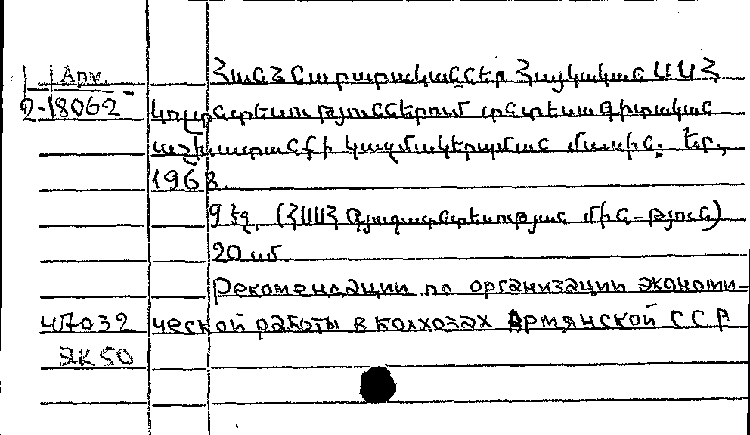 Арм.
2-18062
Հանձնարարականներ Հայկական ՍՍՀ
կոլտնտեսություններում տնտեսագիտական
աշխատանքի կազմակերպման մասին: Եր.,
1968.
9 էջ. (ՀՍՍՀ Գյուղատնտեսության մին-թյուն)
20 սմ.
Рекомендации по организации экономи-
ческой работы в колхозах Армянской ССР
47032
ЭК50